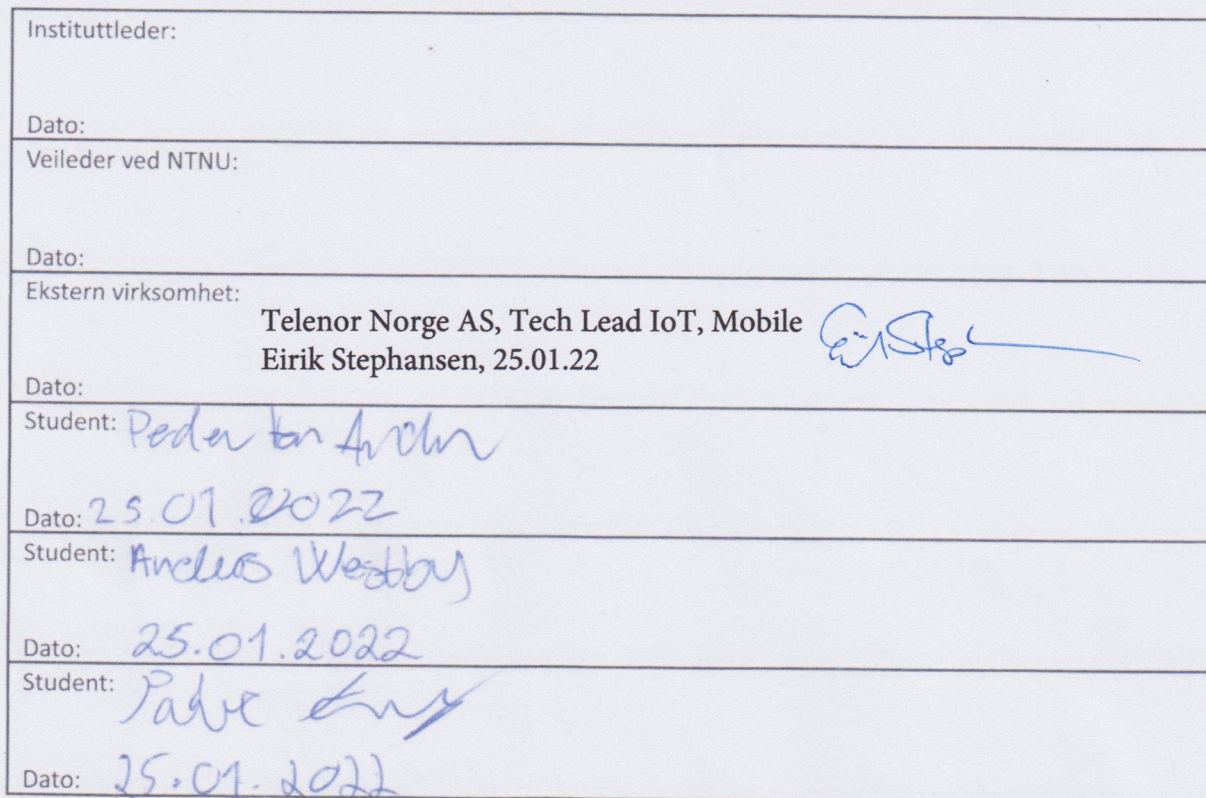 Instituttleder:
Dato:
Veileder ved NTNU:
Dato:
Ekstern virksomhet:
Telenor Norge AS, Tech Lead IoT, Mobile
Eirik Stephansen, 25.01.22
Dato:
Student: Peder
Dato: 25.01.2022
Student: Anders Westby
Dato: 25.01.2022
Student:
Dato: 25.01.2022